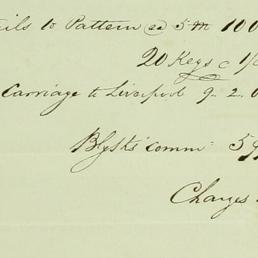 ils to Pattern @ 5 M 100
20 Kegs @ 1/
Carriage to Liverpool 9. 2. 0
comm: 5
Charges